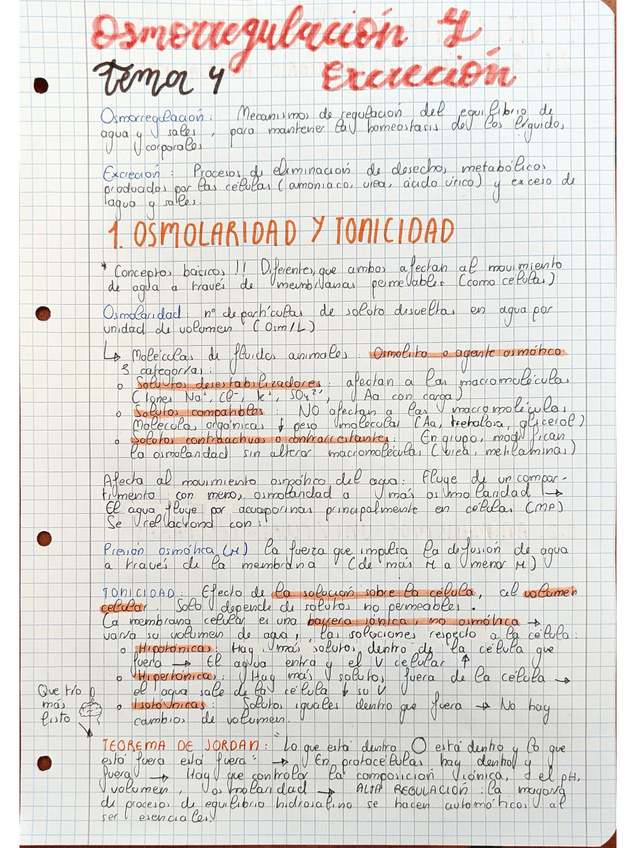 Osmorregulación y
Tema 4 Excreción
Osmorregulación: Mecanismos de regulación del equilibrio de
agua y sales, para mantener la homeostasis de los líquidos
corporales
Excreción: Procesos de eliminación de desechos metabólicos
producidos por las células (amoniaco, urea, ácido úrico) y exceso de
agua y sales.
1. OSMOLARIDAD Y TONICIDAD
* Conceptos básicos!! Diferentes, que ambos afectan al movimiento
de agua a través de membranas permeables (como células)
Osmolaridad: nº de partículas de soluto disueltas en agua por
unidad de volumen (Osm/L)
↳ Moléculas de fluidos animales: Osmolito o agente osmótico
3 categorías:
o Solutos desestabilizadores: afectan a las macromoléculas
(Iones Na⁺, Cl⁻, K⁺, SO₄²⁻, Aa con carga)
o Solutos compatibles: NO afectan a las macromoléculas
Moléculas orgánicas ↓ peso molecular (Aa, trehalosa, glicerol)
o Solutos contrarrestantes: En grupo, modifican
la osmolaridad sin alterar macromoléculas (urea, metilaminas)
Afecta al movimiento osmótico del agua: Fluye de un compar-
timento con menos osmolaridad a ↑ más osmolaridad ↦
El agua fluye por acuaporinas principalmente en células (MP)
Se relaciona con:
Presión osmótica (π) la fuerza que impulsa la difusión de agua
a través de la membrana (de más a menor)
TONICIDAD: Efecto de la solución sobre la célula, al volumen
celular. Solo depende de solutos no permeables.
La membrana celular es una barrera iónica, no osmótica →
varía su volumen de agua, las soluciones respecto a la célula:
o Hipotónicas: Hay ↓ más solutos dentro de la célula que
fuera → El agua entra y el V celular ↑
o Hipertónicas: Hay más solutos fuera de la célula →
el agua sale de la célula ↓ su V
o Isotónicas: Solutos iguales dentro que fuera → No hay
cambios de volumen.
Que tío
más
listo
TEOREMA DE JORDAN: "Lo que está dentro, está dentro y lo que
está fuera está fuera" → En protocélulas hay dentro y
fuera → Hay que controlar la composición iónica, el pH,
volumen, osmolaridad → ALTA REGULACIÓN: la mayoría
de procesos de equilibrio hidrosalino se hacen automáticos al
ser esenciales.